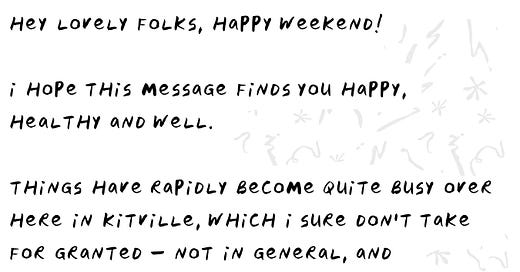 Hey lovely folks, happy weekend!
i hope this message finds you happy,
healthy and well.
Things have rapidly become quite busy over
here in Kitville, which i sure don't take
for granted – not in general, and